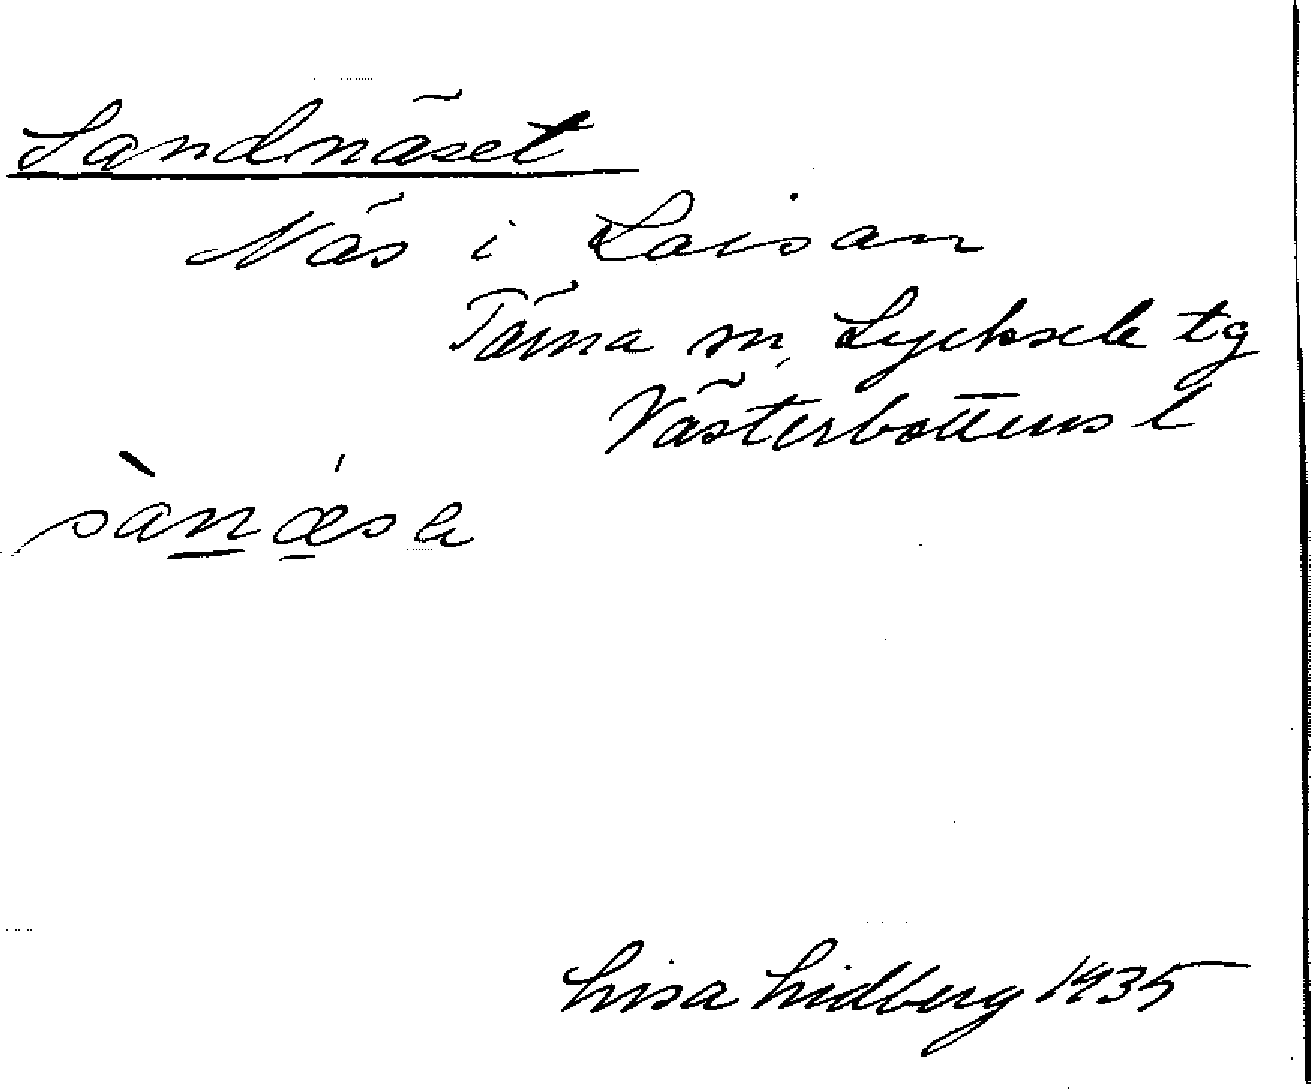 Sandnäset
Näs i Laisan
Tärna sn, Lycksele tg
Västerbottens l
sànǽsə
Lisa Lidberg 1935